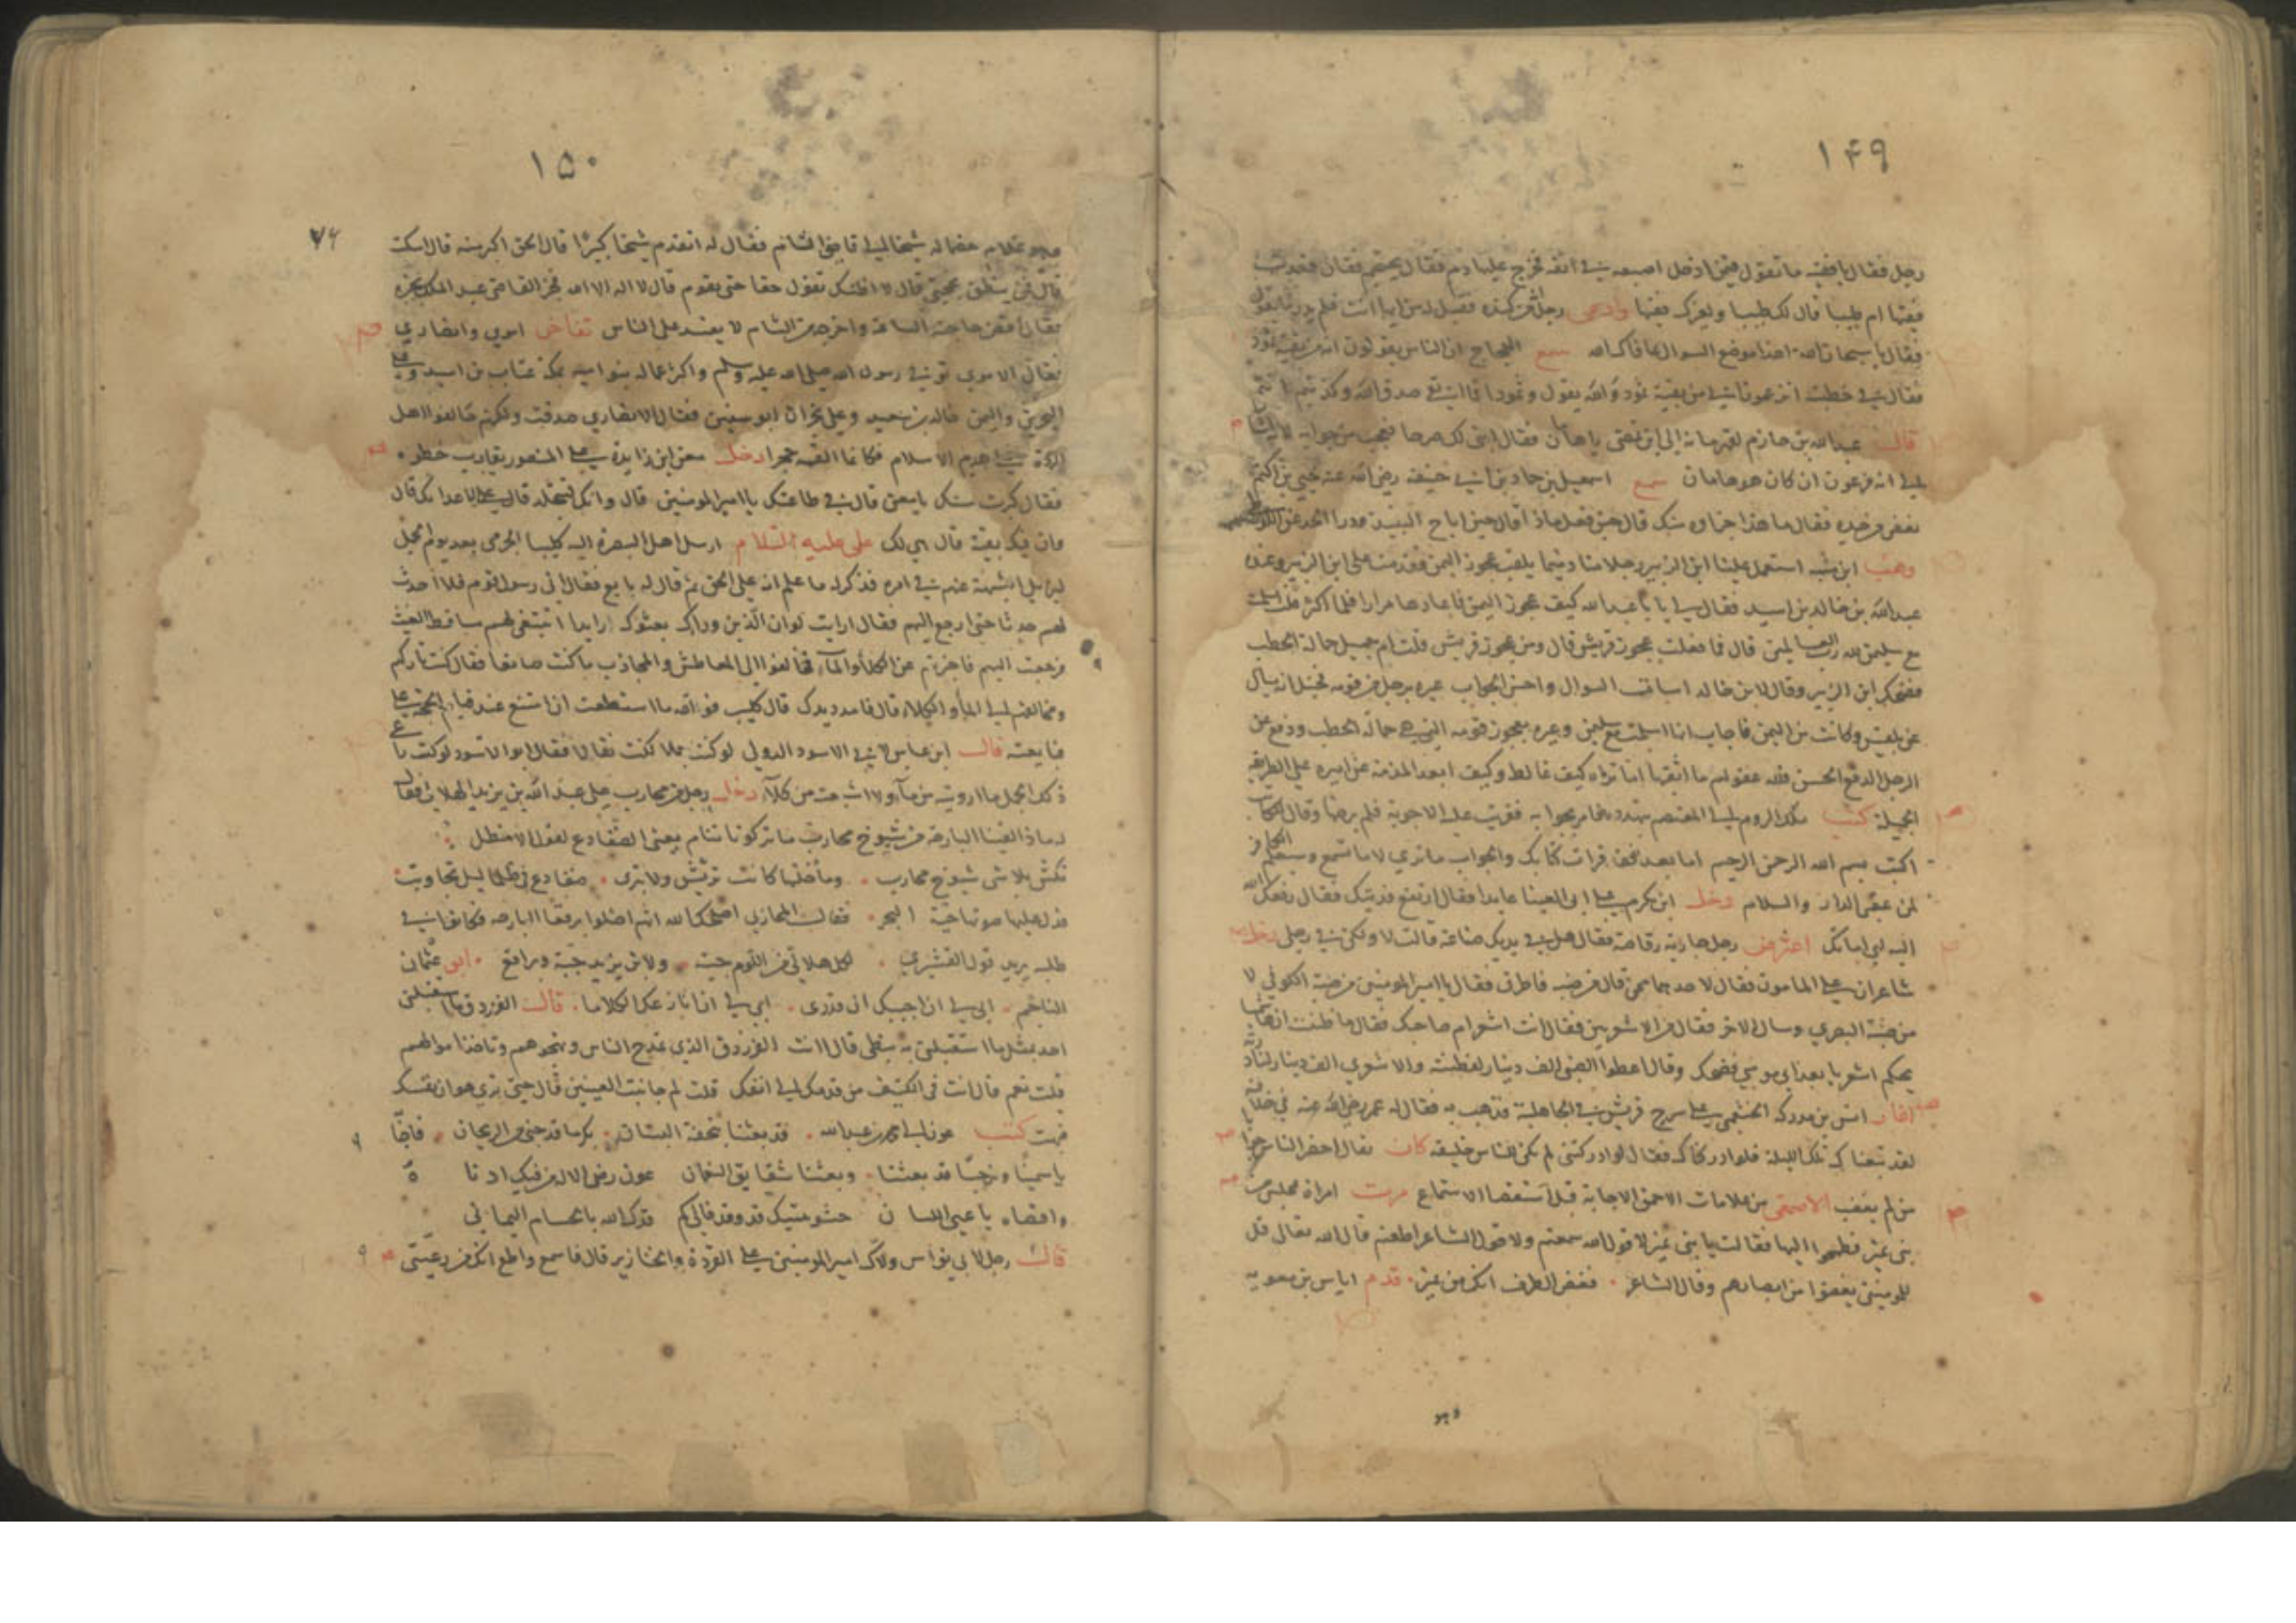 ١٤٩
رجل فقال يا فقيه ما تقول فيمن ادخل اصبعه في انفه فخرج عليها دم فقال يحتجم فقال قعدت
فقيها ام طبيبا قال لك طبيبا ولغيرك فقيها وادعى رجل انه من كنده فقيل له من ايها انت فلم يدر ما يقول
فقال يا سبحان الله اهذا موضع السوال عافاك الله سمع الحجاج ان الناس يقولون انه من بقية ثمود
فقال في خطبته اتزعمون اني من بقية ثمود والله يقول وثمودا فما ابقى صدق الله وكذبتم
قال عبد الله بن حازم لقهرمانه الى اين تمضي يا هامان فقال ابني لك صرحا فعجب من جوابه
الى انه فرعون ان كان هو هامان سمع اسمعيل بن حماد بن ابي حنيفة رضي الله عنه يحيى بن اكثم
يغض من جده فقال ما هذا جزاوه منك قال حين فعل ماذا قال حين اباح النبيذ ودرا الحد عن
وهب ابن منبه استعمل علينا ابن الزبير رجلا منا دميما يلقب عجوز اليمن فقدمت على ابن الزبير وعنده
عبد الله بن خالد بن اسيد فقال لي يا با عبد الله كيف عجوز اليمن فاعادها مرارا فلما اكثر قلت اسلمت
مع سليمن لله رب العالمين قال فما فعلت عجوز قريش قال ومن عجوز قريش قلت ام جميل حمالة الحطب
فضحك ابن الزبير وقال لابن خالد اسات السوال واحسن الجواب عيره برجل من قومه فخيل انه يسال
عن بلقيس وكانت من اليمن فاجاب انها اسلمت مع سليمن وعيره بعجوز قومه التي هي حمالة الحطب ودفع عن
الرجل الدفع الحسن فلله عقولهم ما اثقبها اما تراه كيف غالط وكيف ابعد المذمة عن اميره على الطريقة
الجميلة كتب ملك الروم الى المعتصم يتهدده فامر بجوابه فقربت عليه الاجوبة فلم يرضها وقال للكاتب
اكتب بسم الله الرحمن الرحيم اما بعد فقد قرات كتابك والجواب ما ترى لا ما تسمع وسيعلم الكافر
لمن عقبى الدار والسلام دخل ابن مكرم على ابي العينا عايدا فقال ارتفع فديتك فقال رفعك الله
اليه اي اماتك اعترض رجل جارية رقاصة فقال هل في يديك صناعة قالت لا ولكن في رجلي دخل
شاعران على المامون فقال لاحدهما ممن قال من ضبة فاطرق فقال يا امير المومنين من ضبة الكوفي لا
من ضبة البصري وسال الاخر فقال من الاشعريين فقال انت اشعر ام صاحبك فقال ما ظننت ان هاشميا
يحكم اشعريا بعد ابي موسى فضحك وقال اعطوا الضبي الف دينار لفطنته والاشعري الف دينار لنادرته
اغار انس بن مدركة الخثعمي على سرح قريش في الجاهلية فذهب به فقال له عمر رضي الله عنه في خلافته
لقد تبعناك تلك الليلة فلو ادركناك فقال لو ادركتني لم تكن للناس خليفة كان يقال احضر الناس جوابا
من لم يغضب الاصمعي من علامات الاحمق الاجابة قبل استقصا الاستماع مرت امراة بمجلس من
بني نمير فطمحوا اليها فقالت يا بني نمير لا قول الله سمعتم ولا قول الشاعر اطعتم قال الله تعالى قل
للمومنين يغضوا من ابصارهم وقال الشاعر . فغض الطرف انك من نمير . قدم اياس بن معويه
وهو
١٥٠
٧٤
وهو غلام خصما له شيخا الى قاضي الشام فقال له اتقدم شيخا كبيرا قال الحق اكبر منه قال اسكت
قال فمن ينطق بحجتي قال لا اظنك تقول حقا حتى تقوم قال لا اله الا الله فخبر القاضي عبد الملك بخبره
فقال اقض حاجته الساعة واخرجه من الشام لا يفسد على الناس تفاخر اموي وانصاري
فقال الاموي توفي رسول الله صلى الله عليه وسلم واكثر عماله بنو امية بمكة عتاب بن اسيد وعلى
البحرين واليمن خالد بن سعيد وعلى نجران ابو سفين فقال الانصاري صدقت ولكنهم حالفوا اهل
الردة هدم الاسلام فكانما القمه حجرا دخل معن ابن زايدة على المنصور يقارب خطوه
فقال كبرت سنك يا معن قال في طاعتك يا امير المومنين قال وانك لتتجلد قال على اعدائك قال
وان فيك بقية قال هي لك علي عليه السلام ارسل اهل البصرة اليه كليبا الجرمي بعد يوم الجمل
ليزيل الشبهة عنهم في امره فذكر له ما علم انه على الحق ثم قال له بايع فقال اني رسول قوم فلا احدث
لهم حدثا حتى ارجع اليهم فقال ارايت لو ان الذين وراك بعثوك رايدا تبتغي لهم مساقط الغيث
فرجعت اليهم فاخبرتهم عن الكلا والماء فخالفوا الى المعاطش والمجادب ما كنت صانعا فقال كنت تاركهم
ومخالفهم الى الماء والكلاء قال فامدد يدك قال كليب فوالله ما استطعت ان امتنع عند قيام الحجة علي
فبايعته قال ابن عباس لابي الاسود الدولي لو كنت جملا لكنت ثقالا فقال ابو الاسود لو كنت راعي
ذلك الجمل ما ارويته من ماء ولا اشبعته من كلأ دخل رجل من محارب على عبد الله بن يزيد الهلالي فقال
له ماذا لقينا البارحة من شيوخ محارب ما تركونا ننام يعني الضفادع لقول الاخطل
تكش بلا شي شيوخ محارب . وما خلتها كانت تريش ولا تبرى . ضفادع في ظلما ليل تجاوبت
فدل عليها صوتها حية البحر . فقال المحاربي اصلحك الله انهم اضلوا برقعا البارحة فكانوا في
طلبه يريد قول القشيري . لكل هلالي من اللوم جبة . ولابن يزيد جبة وبراقع . ابو عثمان
الناجم . ابى لي ان اجيبك ان قدرى . ابى لي ان انازعك الكلاما . قال الفرزدق ما استقبلني
احد بمثل ما استقبلني به نبطي قال اانت الفرزدق الذي تمدح الناس وتهجوهم وتاخذ اموالهم
قلت نعم قال انت في الكنيف من قدمك الى انفك قلت لم حاشيت العينين قال حتى ترى هوان نفسك
فبهت كتب عون الى محمد بن عبد الله . قد بعثنا بتحفة البستان . بكر ما قد جنى من الريحان . فاجتا
ياسمينا ونرجسا قد بعثنا . وبعثنا شقايق النعمان عون رضى الاله فيك ادنا ة
واقصاه يا عيي اللسان حشو بيتيك قد وقد فالى كم قدك الله بالحسام اليماني
قال رجل لابي نواس ولاك امير المومنين على القردة والخنازير قال فاسمع واطع انك من رعيتي